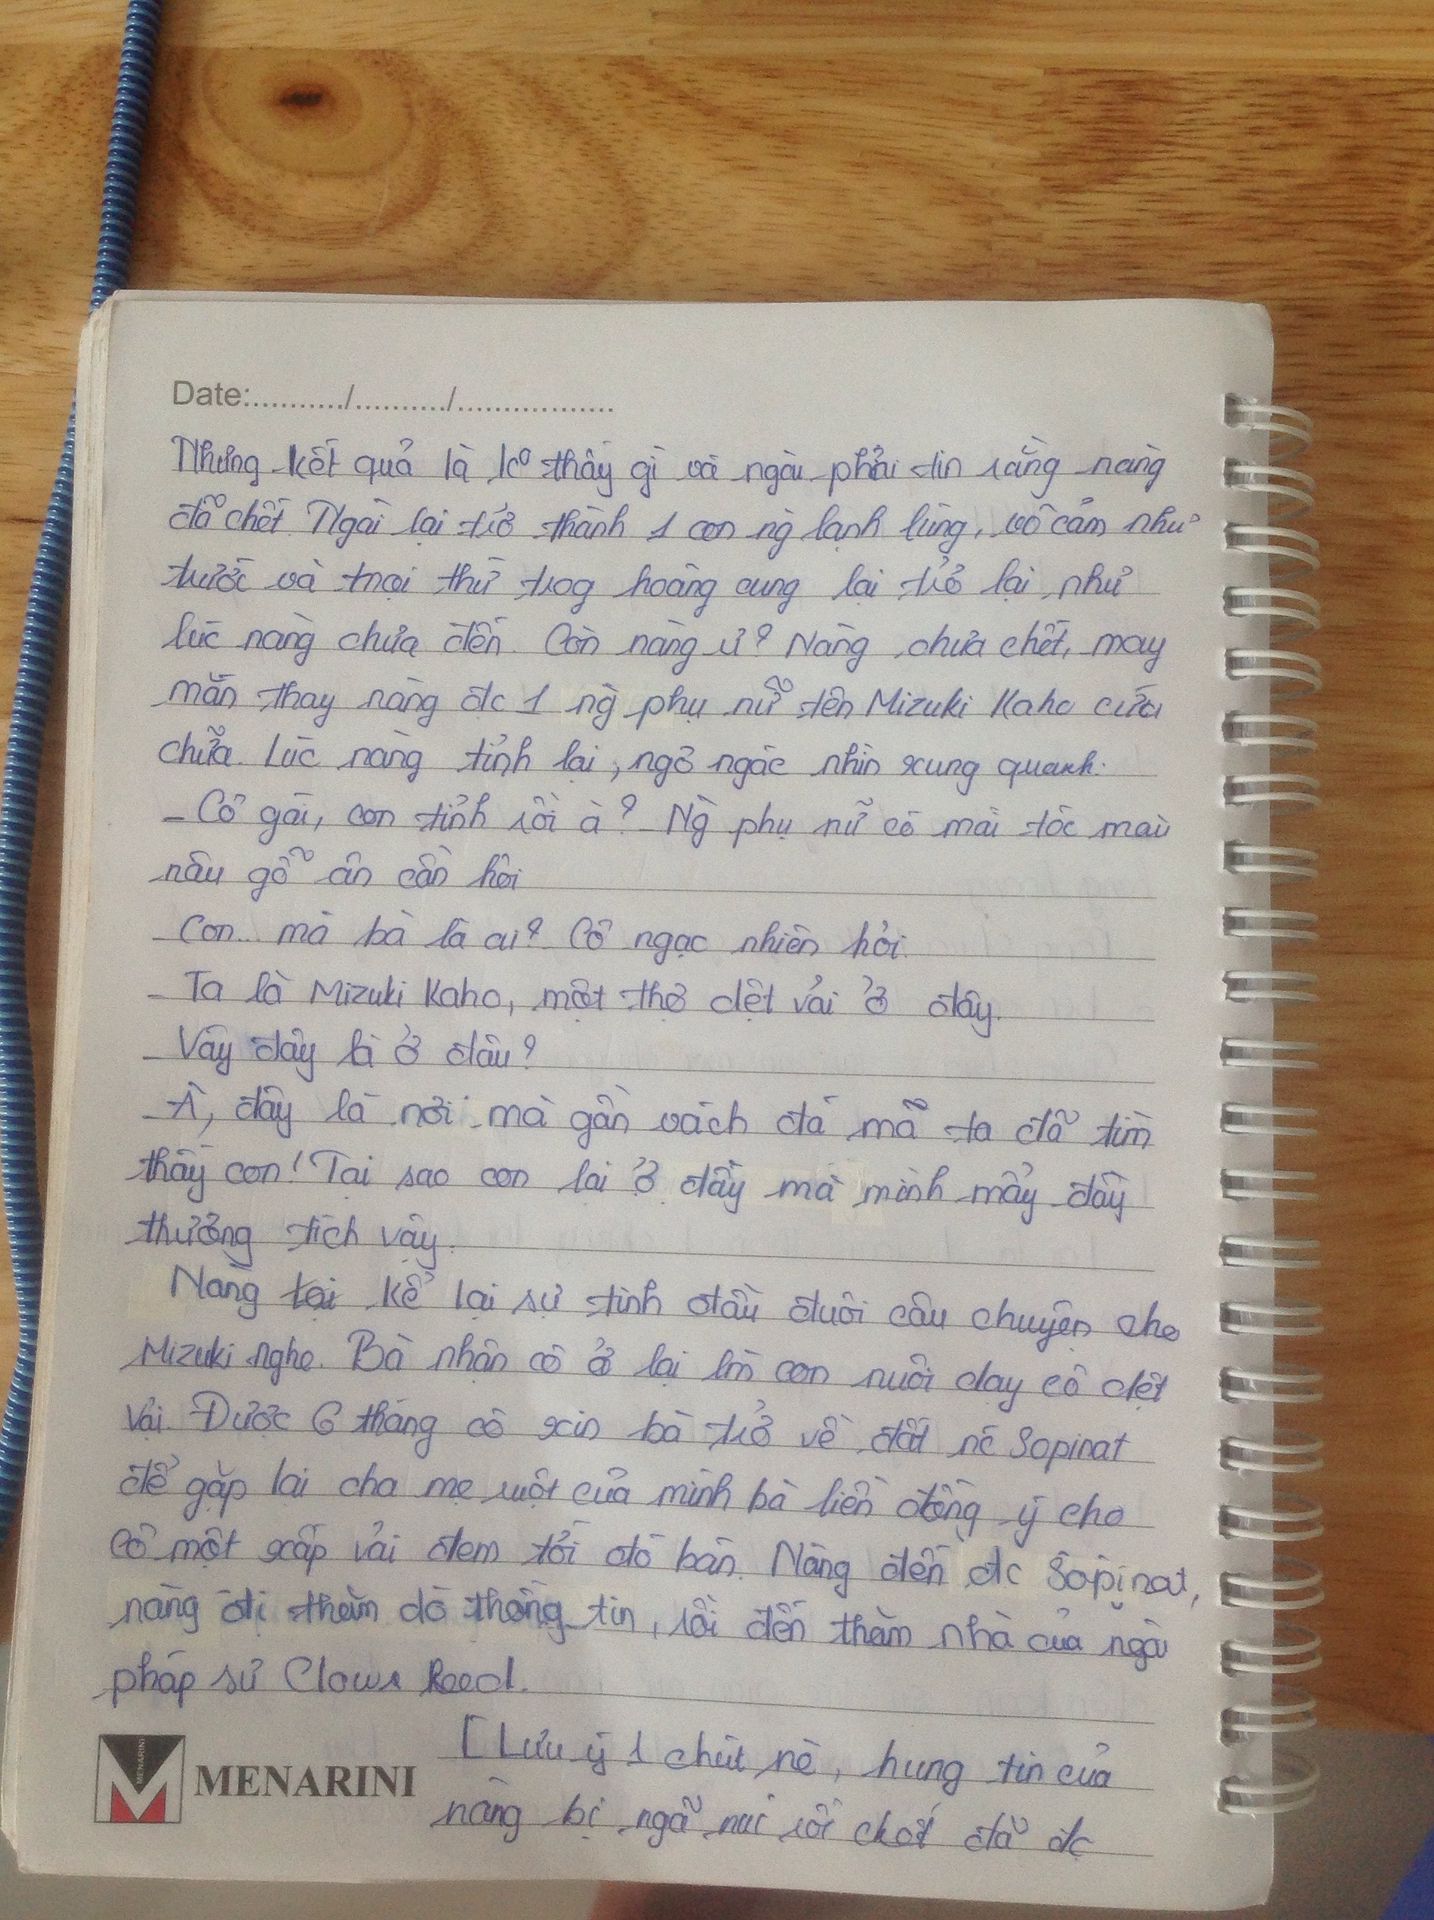 Date:.........../.........../..................
Nhưng kết quả là ko thấy gì và ngài phải tin rằng nàng
đã chết. Ngài lại trở thành 1 con ng lạnh lùng, vô cảm như
trước và mọi thứ trog hoàng cung lại trở lại như
lúc nàng chưa đến. Còn nàng ư? Nàng chưa chết, may
mắn thay nàng đc 1 ng phụ nữ tên Mizuki Kaho cứu
chữa. Lúc nàng tỉnh lại, ngơ ngác nhìn xung quanh.
- Cô gái, con tỉnh rồi à? Ng phụ nữ có mái tóc màu
nâu gỗ ân cần hỏi
- Con... mà bà là ai? Cô ngạc nhiên hỏi.
- Ta là Mizuki Kaho, một thợ dệt vải ở đây.
- Vậy đây là ở đâu?
- À, đây là nơi mà gần vách đá mà ta đã tìm
thấy con! Tại sao con lại ở đấy mà mình mẩy đầy
thương tích vậy.
Nàng kể lại sự tình đầu đuôi câu chuyện cho
Mizuki nghe. Bà nhận cô ở lại làm con nuôi dạy cô dệt
vải. Được 6 tháng cô xin bà trở về đất nc Sopinat
để gặp lại cha mẹ ruột của mình bà liền đồng ý cho
cô một xấp vải đem tới đó bán. Nàng đến đc Sopinat,
nàng đi thăm dò thông tin, rồi đến thăm nhà của ngài
pháp sư Clows Reed.
[ Lưu ý 1 chút nè, hung tin của
nàng bị ngã núi rồi chết đã đc
MENARINI